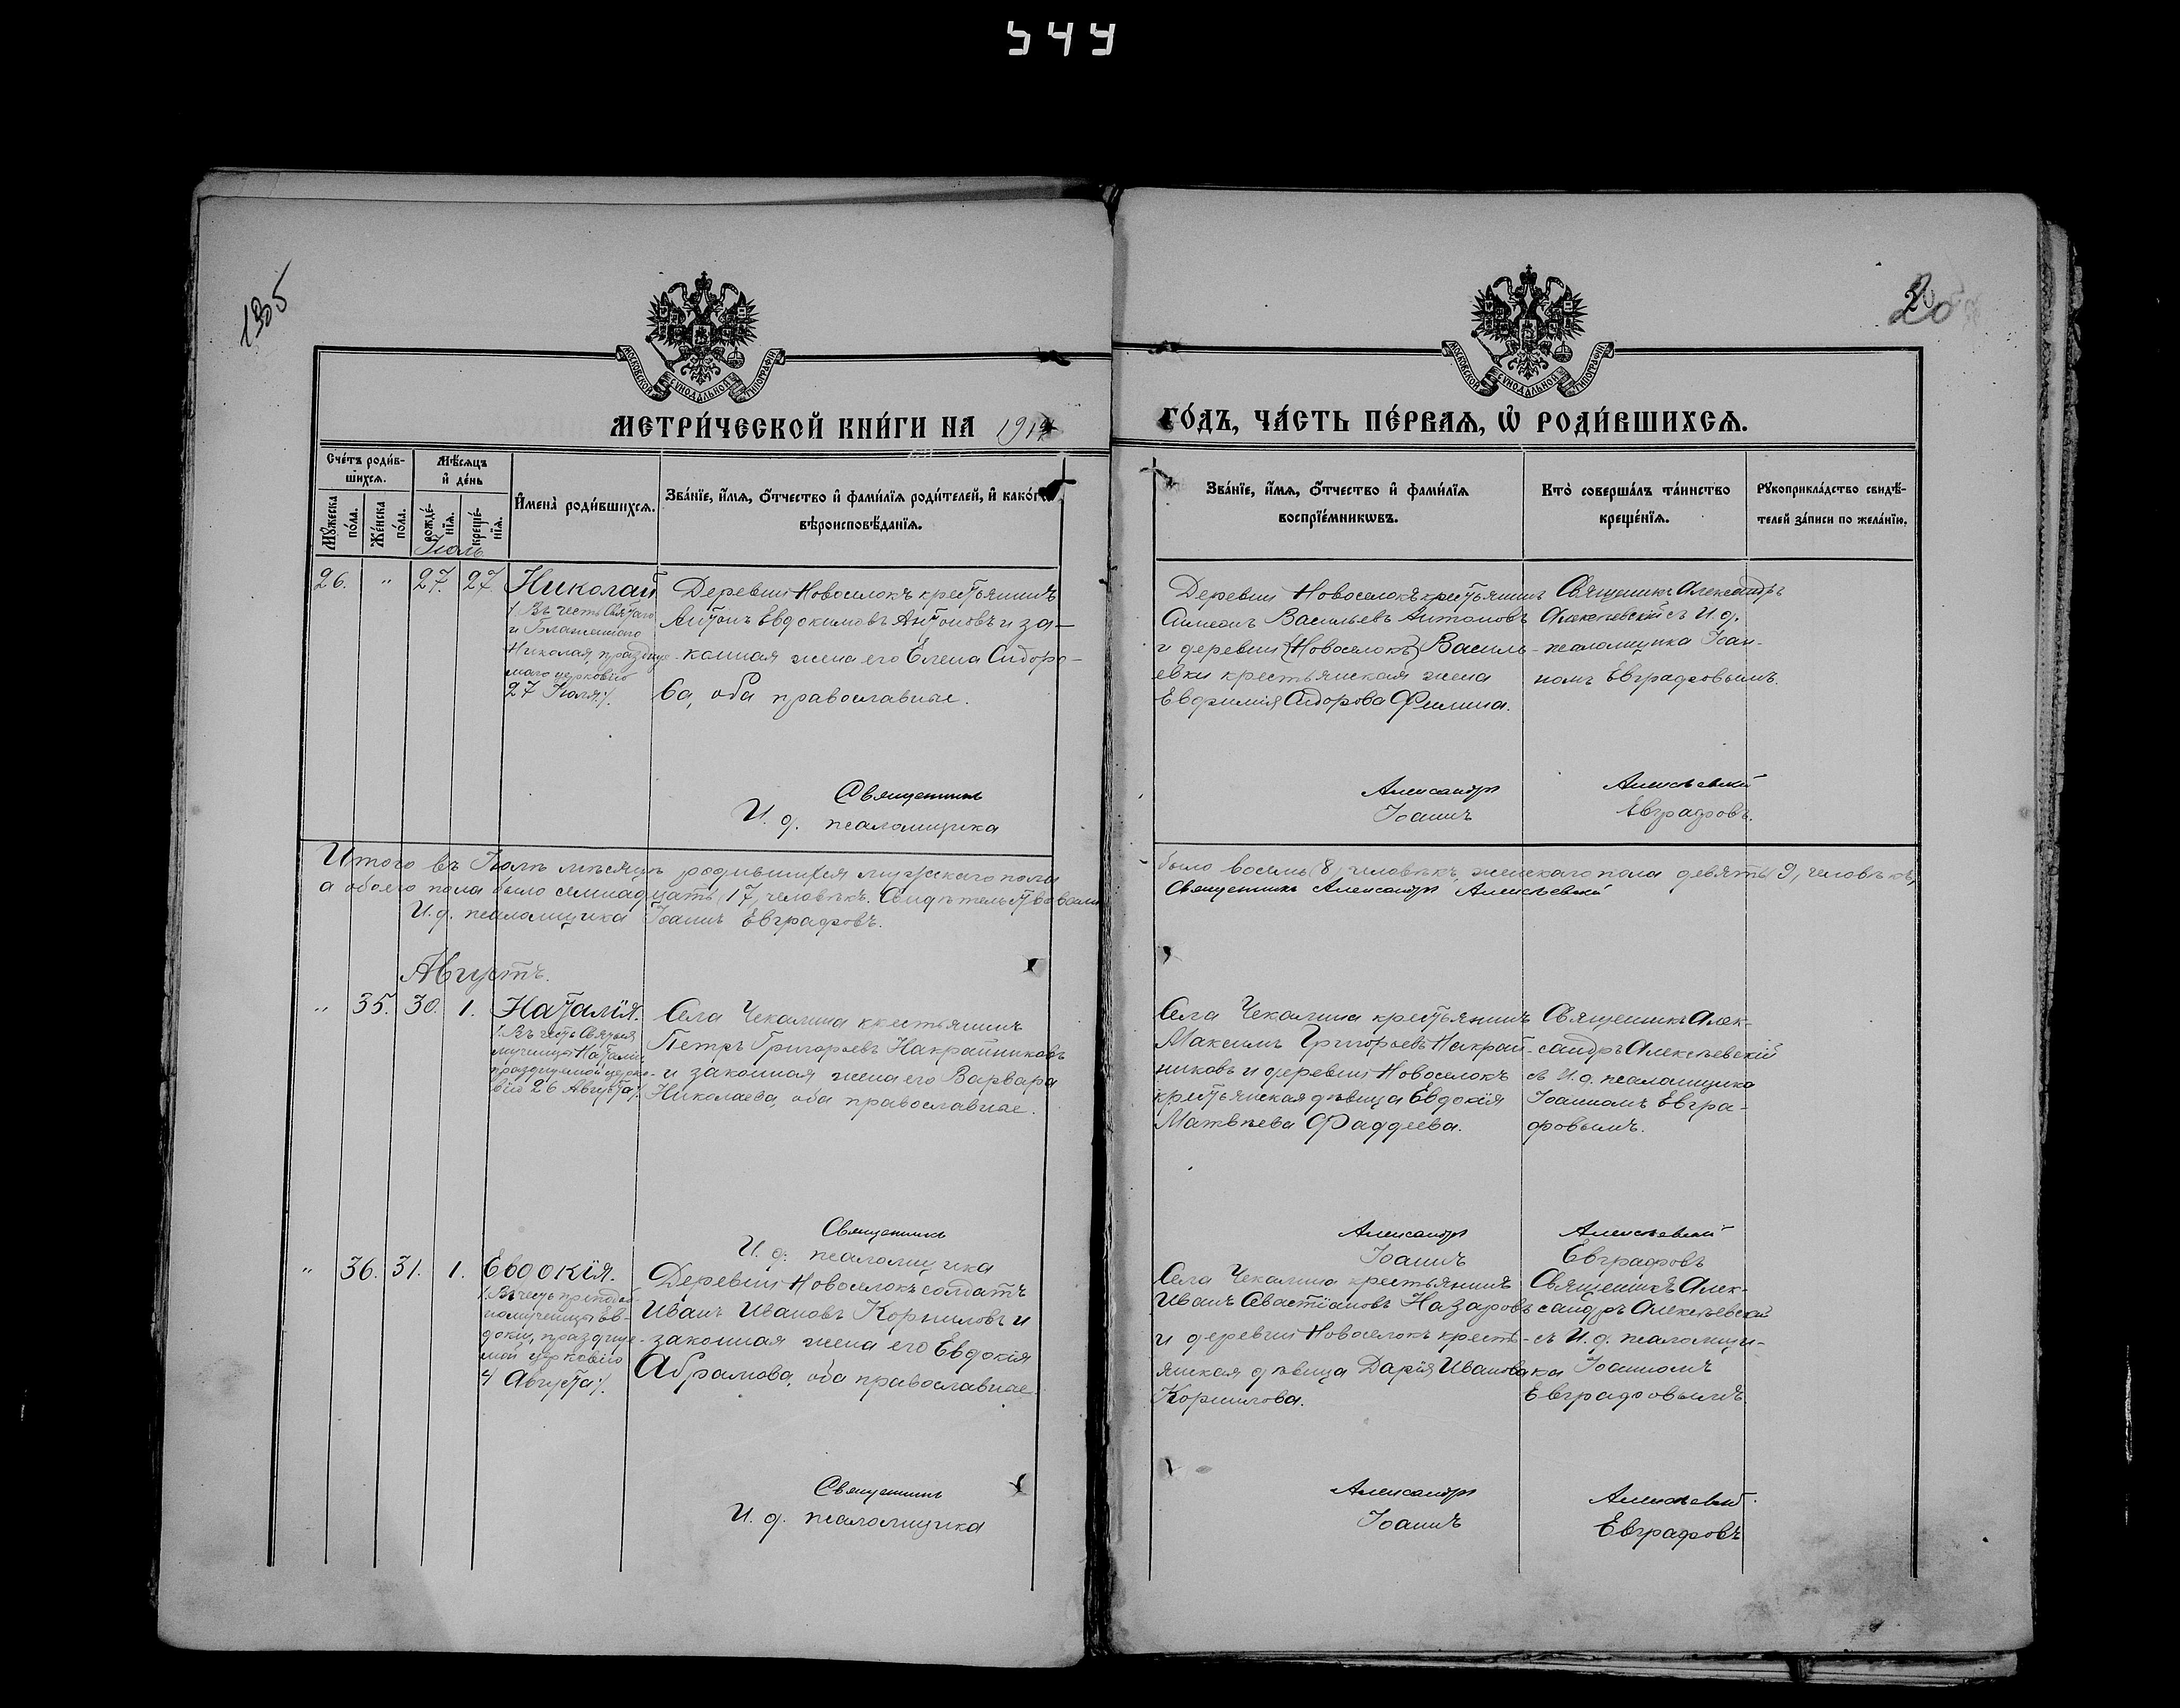 544
135
20
МОСКОВСКОЙ СУНОДАЛЬНОЙ ТИПОГРАФІИ
МОСКОВСКОЙ СУНОДАЛЬНОЙ ТИПОГРАФІИ
МЕТРИ́ЧЕСКОЙ КНИ́ГИ НА 1914
ГО́ДЪ, ЧА́СТЬ ПЕ́РВАѦ, Ѽ РОДИ́ВШИХСѦ.
Сче́тъ роди́в-
шихсѧ.
Мѣ́сѧцъ
и҆ де́нь
Мꙋ́жеска по́ла.
Же́нска по́ла.
рожде́-
нїѧ.
креще́-
нїѧ.
И҆мена̀ роди́вшихсѧ.
Зва́нїе, и҆́мѧ, ѻ҆́тчество и҆ фами́лїѧ роди́телей, и҆ како́гѡ
вѣроисповѣ́данїѧ.
Зва́нїе, и҆́мѧ, ѻ҆́тчество и҆ фами́лїѧ
воспрїе́мникѡвъ.
Кто̀ соверша́лъ та́инство
креще́нїѧ.
Рꙋкоприкла́дство свидѣ́-
телей за́писи по жела́нїю.
Іюль
26. " 27. 27. Николай
/. Въ честь Святаго
и Блаженнаго
Николая, празднуе-
маго церковію
27 Іюля./.
Деревни Новоселокъ крестьянинъ
Антонъ Евдокимовъ Антоновъ и за-
конная жена его Елена Сидоро-
ва, оба православные.
Деревни Новоселокъ крестьянинъ
Симеонъ Васильевъ Антоновъ
и деревни {Новоселокъ} Василь-
евки крестьянская жена
Евфимія Сидорова Филина.
Священникъ Александръ
Алексѣевскій съ И. д.
псаломщика Іоан-
номъ Евграфовымъ.
Священникъ Александръ Алексѣевскій
И. д. псаломщика Іоаннъ Евграфовъ.
Итого въ Іюлѣ мѣсяцѣ родившихся мужскаго пола было восемь /8/ человѣкъ, женскаго пола девять /9/ человѣкъ,
а обоего пола было семнадцать /17/ человѣкъ. Свидѣтельствовали Священникъ Александръ Алексѣевскій
И. д. псаломщика Іоаннъ Евграфовъ.
Августъ.
" 35. 30. 1. Наталія.
/. Въ честь Святыя
мученицы Наталіи
празднуемой церко-
вію 26 Августа/.
Села Чекалина крестьянинъ
Петръ Григорьевъ Накрайниковъ
и законная жена его Варвара
Николаева, оба православные.
Села Чекалина крестьянинъ
Максимъ Григорьевъ Накрай-
никовъ и деревни Новоселокъ
крестьянская дѣвица Евдокія
Матвѣева Фаддеева.
Священникъ Алек-
сандръ Алексѣевскій
съ И. д. псаломщика
Іоанномъ Евгра-
фовымъ.
Священникъ Александръ Алексѣевскій
И. д. псаломщика Іоаннъ Евграфовъ
" 36. 31. 1. Евдокія.
/. Въ честь преподоб-
номученицы Ев-
докіи, празднуе-
мой церковію
4 Августа/.
Деревни Новоселокъ солдатъ
Иванъ Ивановъ Корниловъ и
законная жена его Евдокія
Абрамова, оба православные.
Села Чекалина крестьянинъ
Иванъ Севастіановъ Назаровъ
и деревни Новоселокъ кресть-
янская дѣвица Дарія Иванова
Корнилова.
Священникъ Алек-
сандръ Алексѣевскій
съ И. д. псаломщи-
ка Іоанномъ
Евграфовымъ.
Священникъ Александръ Алексѣевскій.
И. д. псаломщика Іоаннъ Евграфовъ